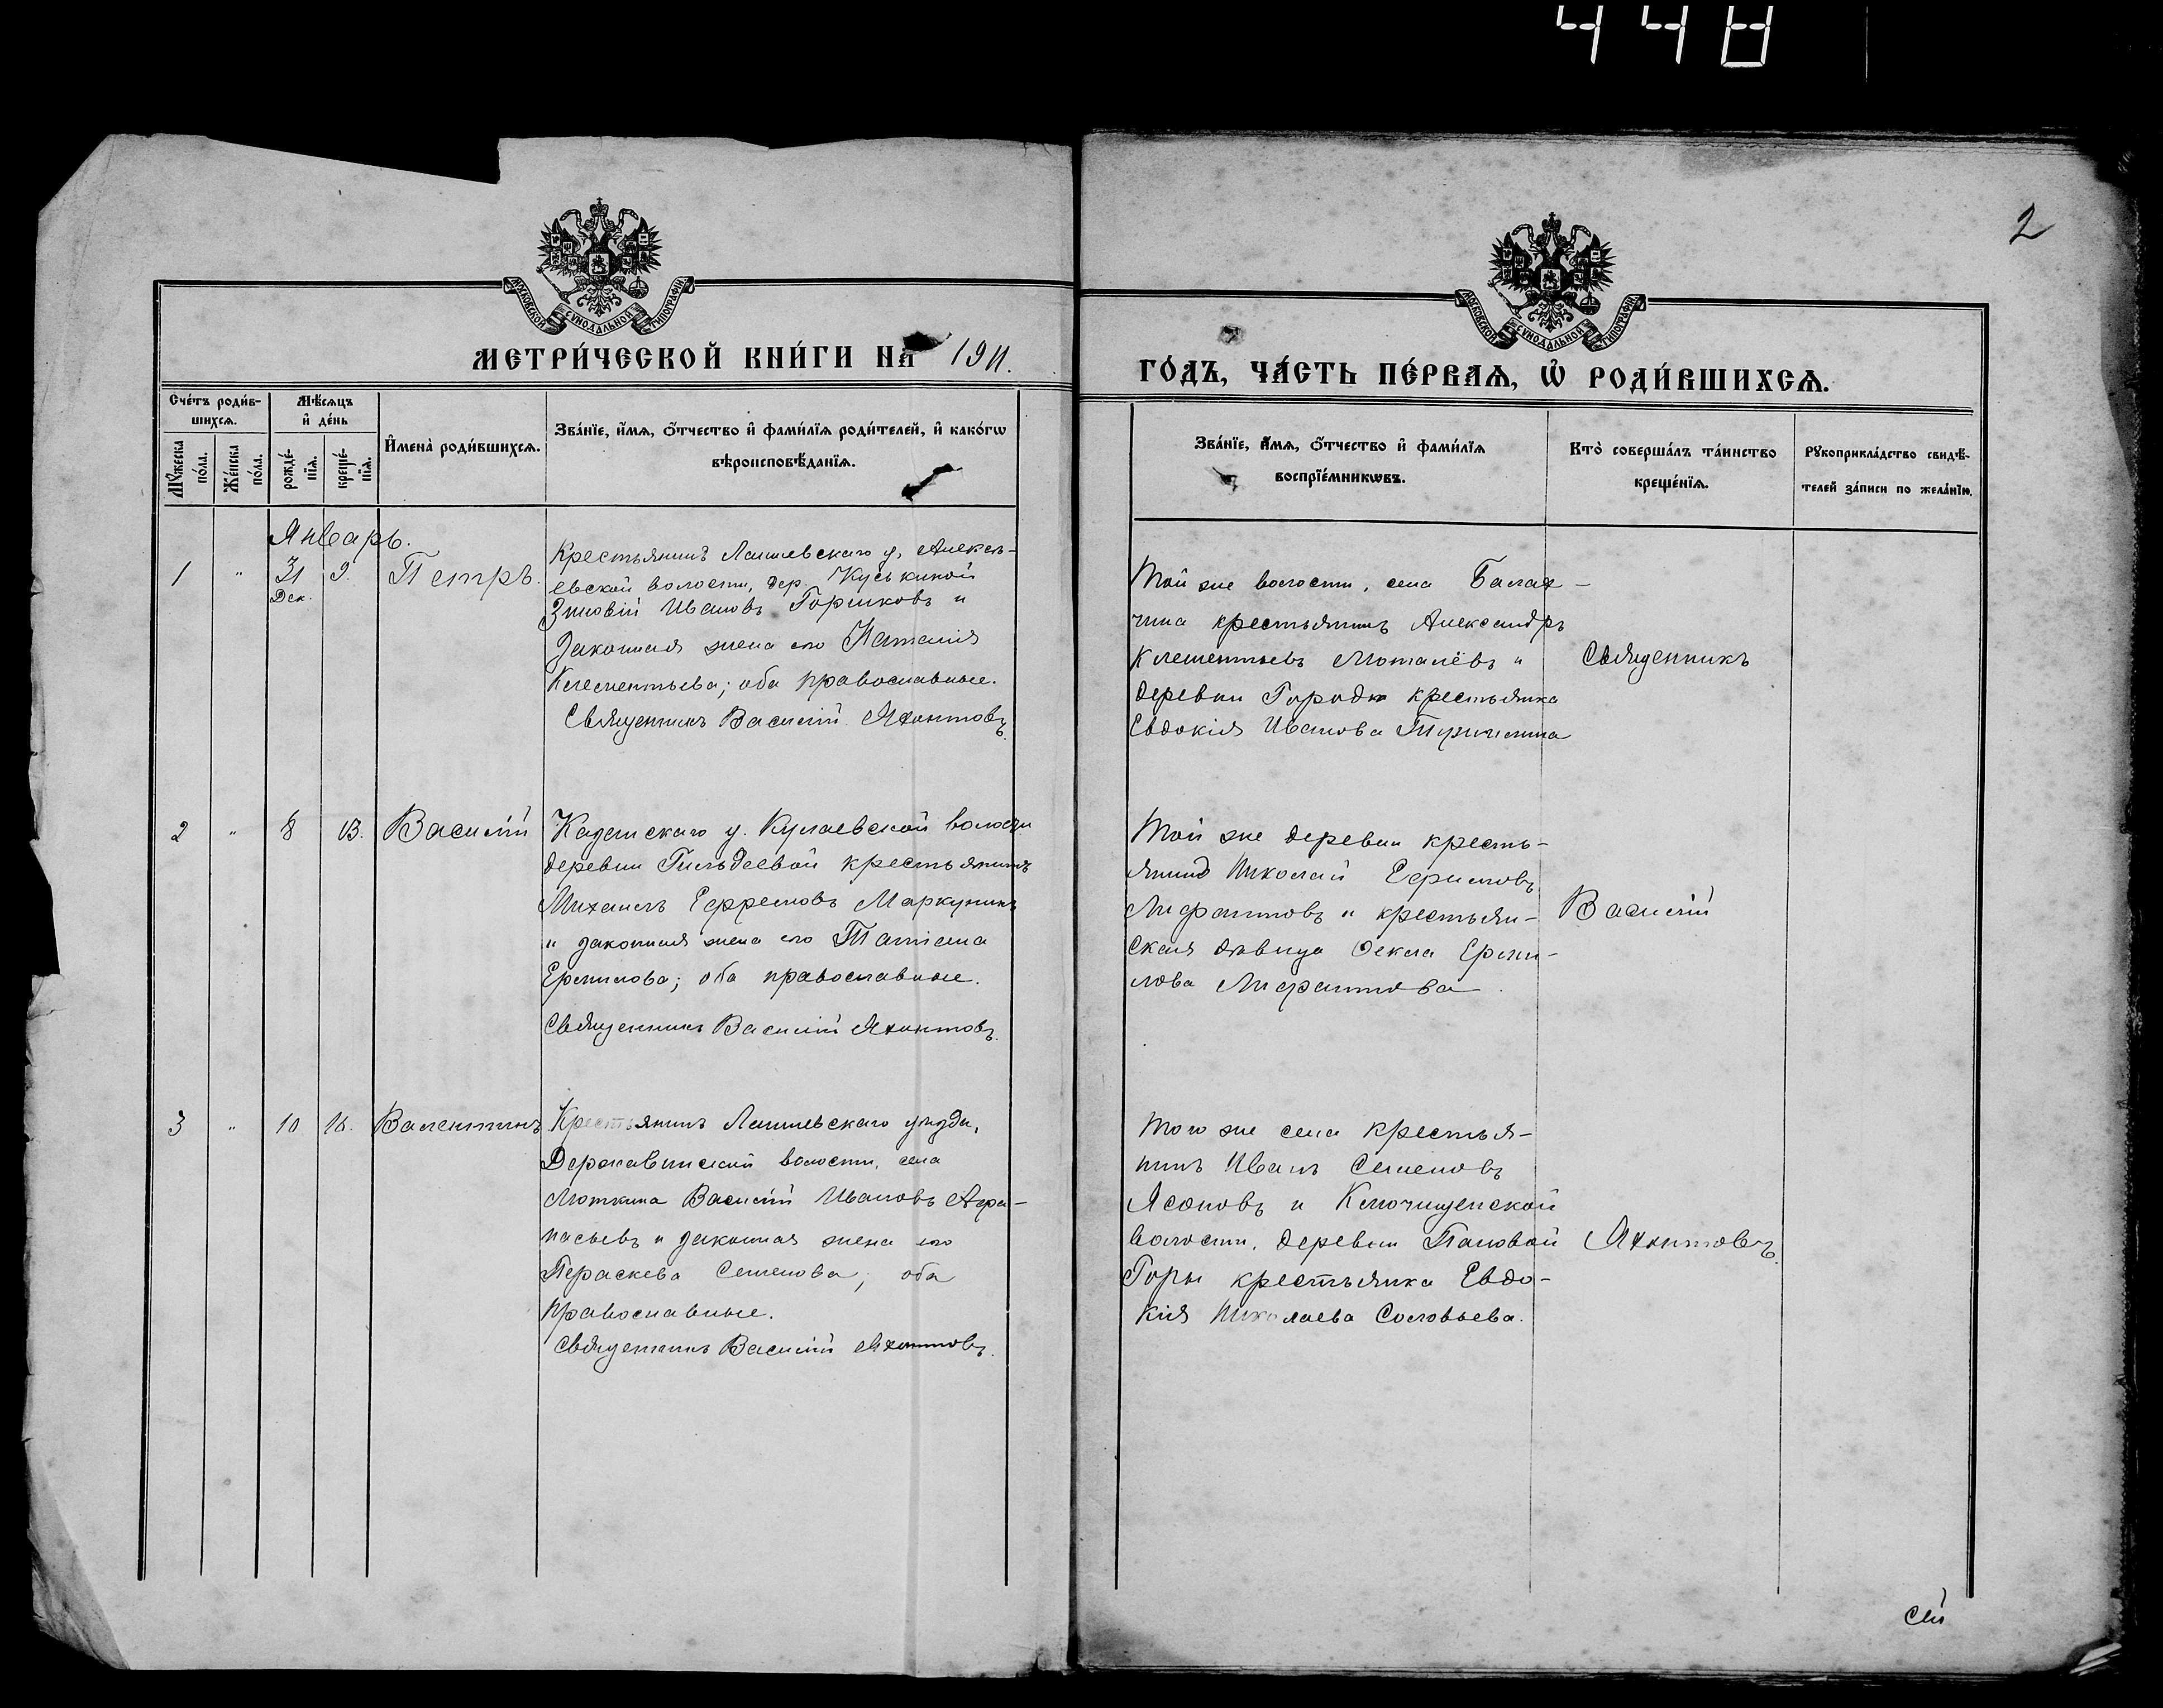 448
2
МОСКОВСКОЙ СѴНОДАЛЬНОЙ ТИПОГРАФІИ
МОСКОВСКОЙ СѴНОДАЛЬНОЙ ТИПОГРАФІИ
МЕТРИ́ЧЕСКОЙ КНИ́ГИ НА 1911.
ГО́ДЪ, ЧА́СТЬ ПЕ́РВАѦ, Ѡ҆ РОДИ́ВШИХСѦ.
Сче́тъ роди́в-
шихсѧ.
Мꙋ́жеска по́ла.
Же́нска по́ла.
Мѣ́сѧцъ
и҆ де́нь
рожде́-нїѧ.
креще́-нїѧ.
И҆мена̀ роди́вшихсѧ.
Зва́нїе, и҆́мѧ, о҆́тчество и҆ фами́лїѧ роди́телей, и҆ како́гѡ
вѣроисповѣ́данїѧ.
Зва́нїе, и҆́мѧ, о҆́тчество и҆ фами́лїѧ
воспрїе́мникѡвъ.
Кто̀ соверша́лъ та́инство
креще́нїѧ.
Рꙋкоприкла́дство свидѣ́-
телей за́писи по жела́нїю.
Январь.
1 " 31 Дек. 9. Петръ.
Крестьянинъ Лаишевскаго у, Алексѣ-
евской волости, дер. Куськиной
Зиновій Ивановъ Горшковъ и
законная жена его Наталія
Клементьева; оба православные.
Священникъ Василій Яхонтовъ.
Той же волости, села Балах-
чина крестьянинъ Александръ
Клементьевъ Мотанёвъ и
деревни Городк крестьянка
Евдокія Иванова
Священникъ
2 " 8 13. Василій
Казанскаго у. Кулаевской волости
деревни Гильдеевой крестьянинъ
Михаилъ Ефремовъ Маркунинъ
и законная жена его Татіана
Ермилова; оба православные.
Священникъ Василій Яхонтовъ.
Той же деревни кресть-
янинъ Николай Ефимовъ
Лифантовъ и крестьян-
ская дѣвица Ѳекла Ерми-
лова Лифантова.
Василій
3 " 10 16. Валентинъ
Крестьянинъ Лаишевскаго уѣзда,
Державинской волости, села
Люткина Василій Ивановъ Афа-
насьевъ и законная жена его
Параскева Семенова; оба
православные.
Священникъ Василій Яхонтовъ.
Того же села крестья-
нинъ Иванъ Семеновъ
Ясоновъ и Ключищенской
волости, деревни Пановой
Горы крестьянка Евдо-
кія Николаева Соловьева.
Яхонтовъ.